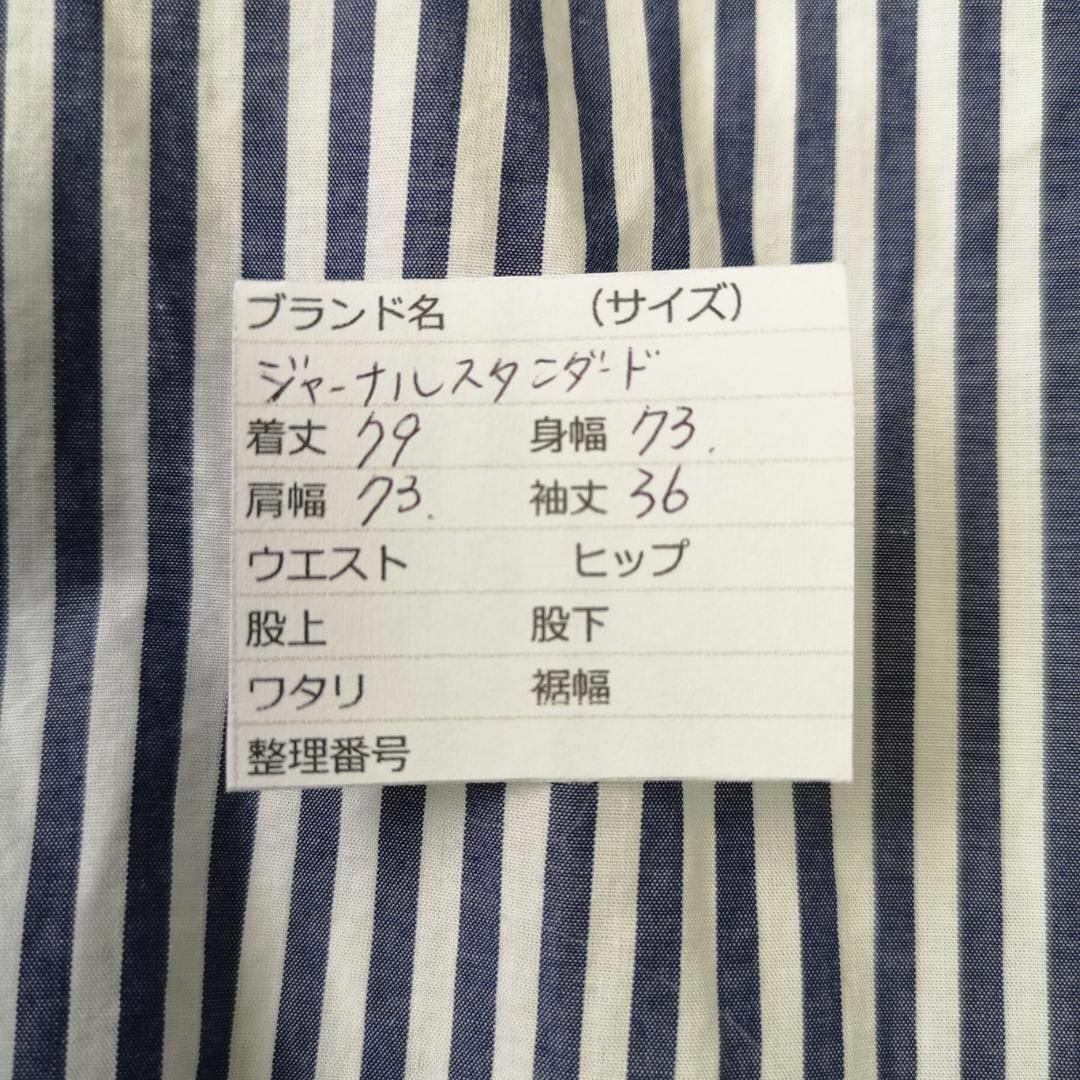 ブランド名 (サイズ)
ジャーナルスタンダード
着丈 79 身幅 73.
肩幅 73. 袖丈 36
ウエスト ヒップ
股上 股下
ワタリ 裾幅
整理番号